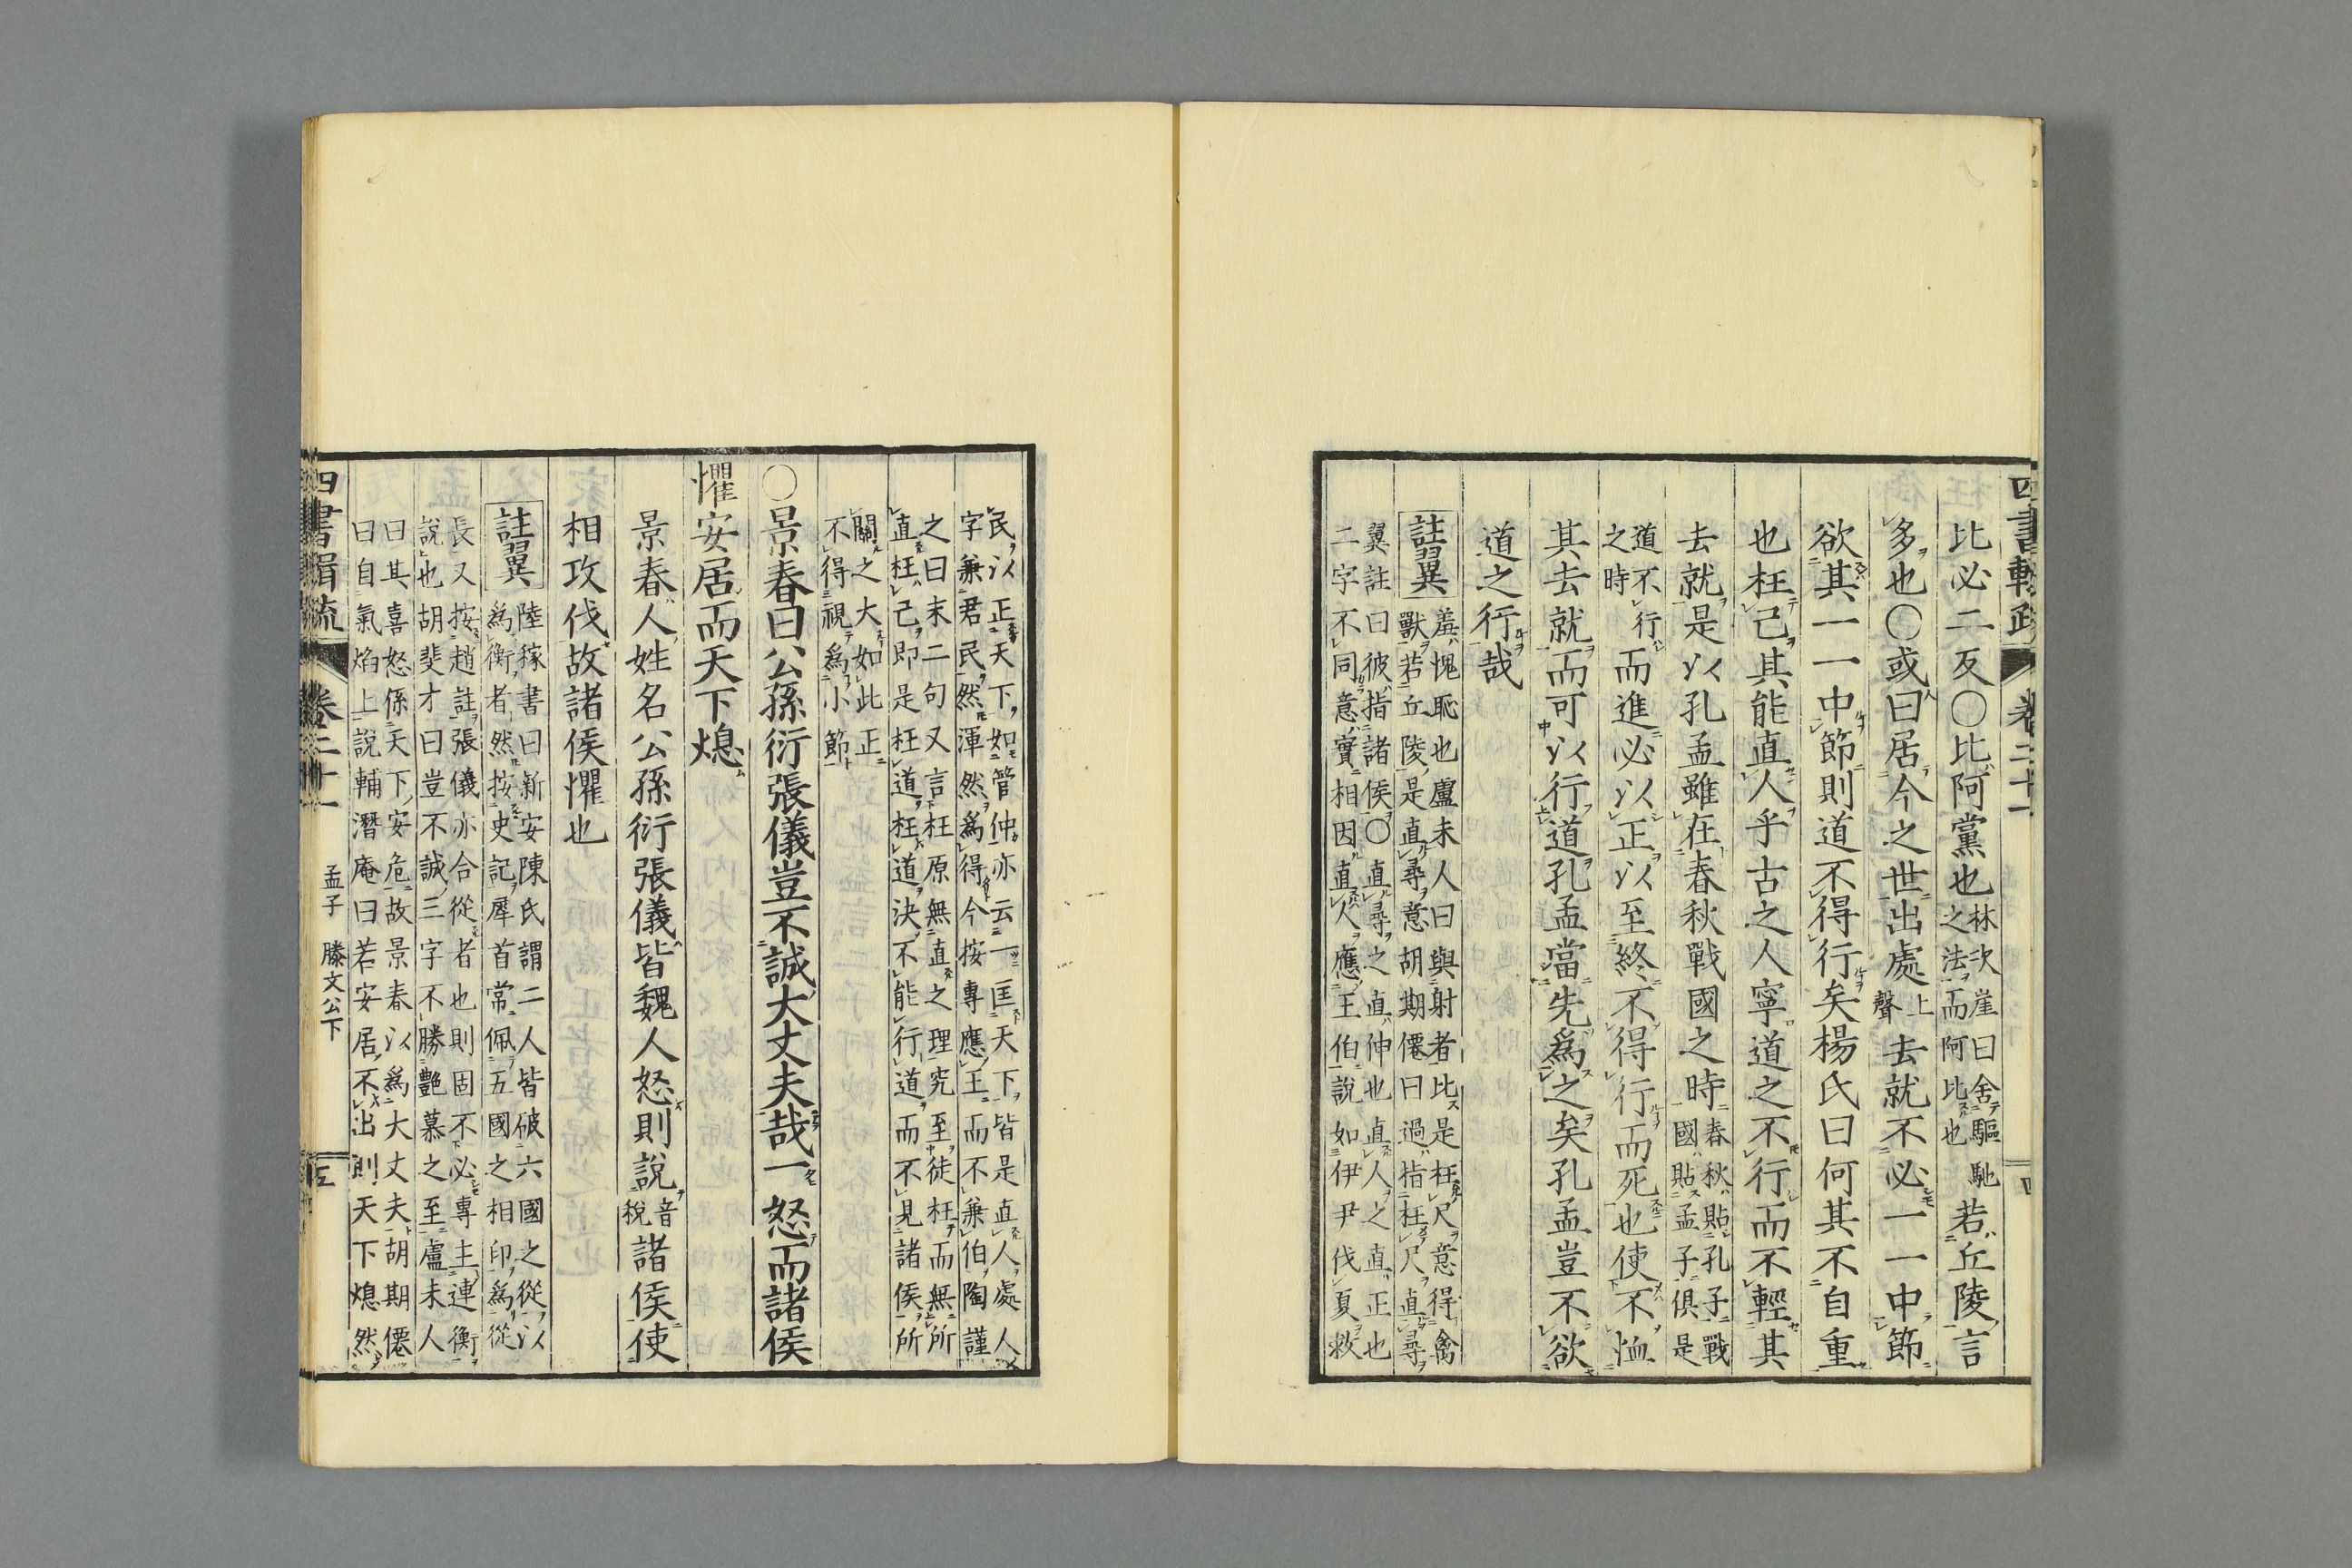 四書輯疏 卷二十一
比必二反〇比阿黨也林次崖曰舍驅馳之法而阿比也若丘陵言
多也〇或曰居今之世出處上聲去就不必一一中節
欲其一一中節則道不得行矣楊氏曰何其不自重
也枉己其能直人乎古之人寧道之不行而不輕其
去就是以孔孟雖在春秋戰國之時春秋貼孔子戰國貼孟子俱是
道不行之時而進必以正以至終不得行而死也使不恤
其去就而可以行道孔孟當先爲之矣孔孟豈不欲
道之行哉
註翼 羞愧恥也盧未人曰與射者比是枉尺意得禽
獸若丘陵是直尋意胡期僊曰過指枉尺直尋
翼註曰彼指諸侯〇直尋之直伸也直人之直正也
二字不同意實相因直人應王伯說如伊尹伐夏救
民以正天下如管仲亦云一匡天下皆是直人處人
字兼君民然渾然爲得今按專應王而不兼伯陶謹
之曰末二句又言枉原無直之理究至徒枉而無所
直枉己即是枉道枉道決不能行道而不見諸侯所
關之大如此正
不得視爲小節
〇景春曰公孫衍張儀豈不誠大丈夫哉一怒而諸侯
懼安居而天下熄
景春人姓名公孫衍張儀皆魏人怒則說音稅諸侯使
相攻伐故諸侯懼也
註翼 陸稼書曰新安陳氏謂二人皆破六國之從以
爲衡者然按史記犀首常佩五國之相印爲從
長又按趙註張儀亦合從者也則固不必專主連衡
說也胡斐才曰豈不誠三字不勝艷慕之至盧未人
曰其喜怒係天下安危故景春以爲大丈夫胡期僊
曰自氣焰上說輔潛庵曰若安居不出則天下熄然
四書輯疏 卷二十一 孟子 滕文公下 五